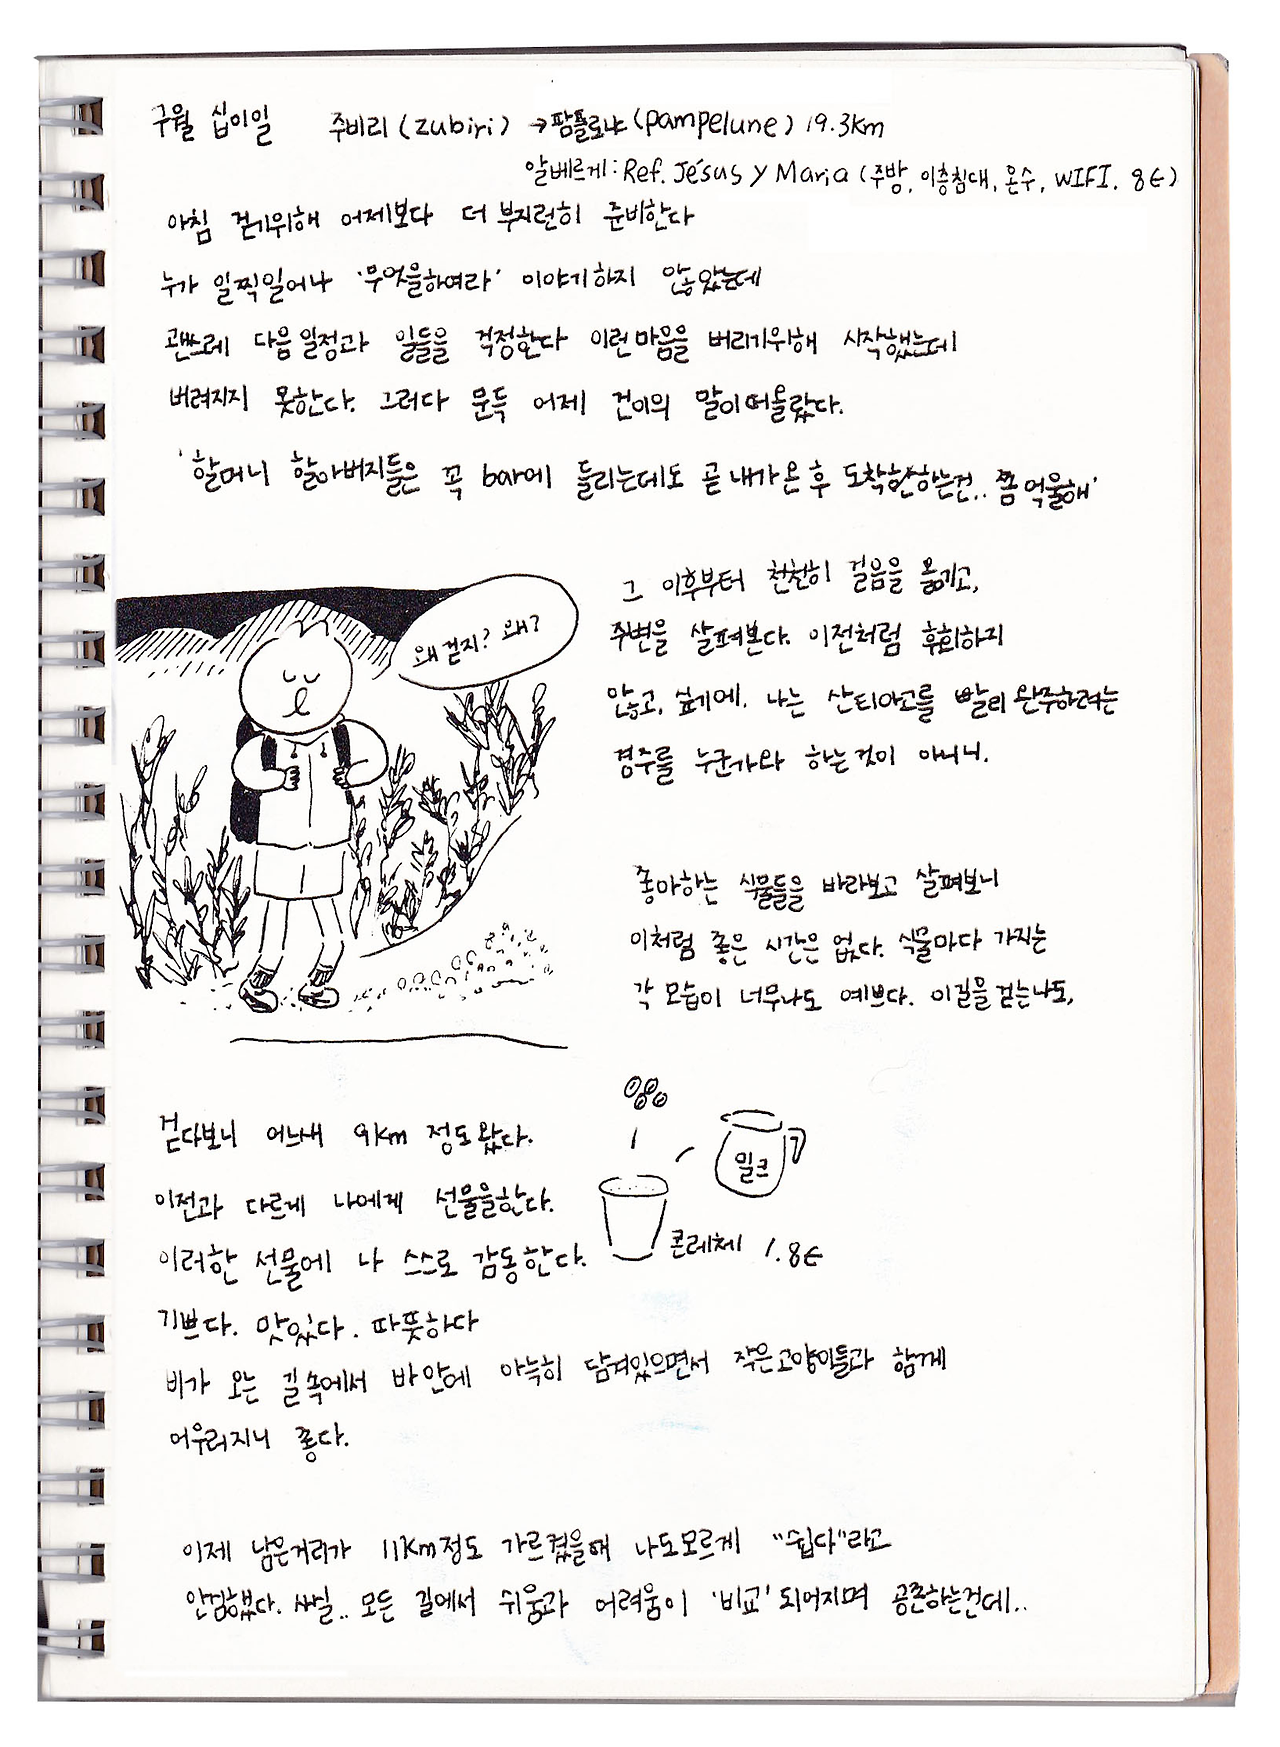 구월 십이일 주비리 (zubiri) → 팜플로냐 (pampelune) 19.3km
알베르게 : Ref. Jésus y Maria (주방, 이층침대, 온수, WIFI. 8€)
아침 걷기위해 어제보다 더 부지런히 준비한다
누가 일찍일어나 '무엇을하여라' 이야기하지 않았는데
괜쓰레 다음일정과 일들을 걱정한다 이런마음을 버리기위해 시작했는데
버려지지 못한다. 그러다 문득 어제 건이의 말이떠올랐다.
'할머니 할아버지들은 꼭 bar에 들리는데도 곧 내가온 후 도착하는건.. 쫌 억울해'
왜 걷지? 왜?
그 이후부터 천천히 걸음을 옮기고,
주변을 살펴본다. 이전처럼 후회하지
않고, 싶기에. 나는 산티아고를 빨리 완주하려는
경주를 누군가와 하는것이 아니니.
좋아하는 식물들을 바라보고 살펴보니
이처럼 좋은 시간은 없다. 식물마다 가지는
각 모습이 너무나도 예쁘다. 이길을걷는나도,
걷다보니 어느새 9km 정도왔다.
이전과 다르게 나에게 선물을한다.
이러한 선물에 나 스스로 감동한다.
기쁘다. 맛있다. 따뜻하다
밀크
콘레체 1.8€
비가 오는 길속에서 바안에 아늑히 담겨있으면서 작은고양이들과 함께
어우러지니 좋다.
이제 남은거리가 11km정도 가르켰을때 나도모르게 "쉽다"라고
안심했다. 사실.. 모든 길에서 쉬움과 어려움이 '비교'되어지며 공존하는건데..